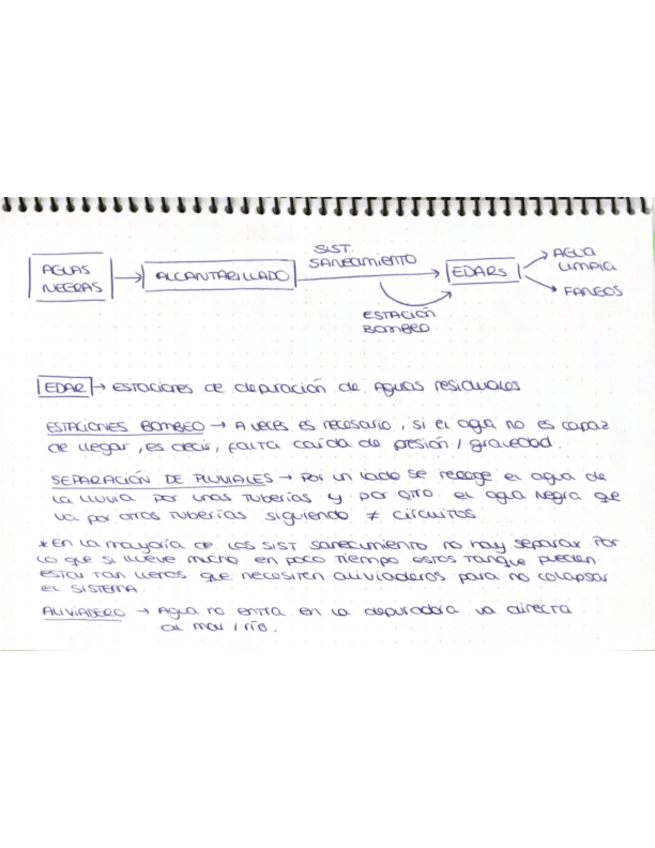 SIST.
AGUAS
NEGRAS
ALCANTARILLADO
SANEAMIENTO
EDARs
AGUA
LIMPIA
FANGOS
ESTACIÓN
BOMBEO
EDAR → ESTACIONES de depuración de Aguas residuales
ESTACIONES BOMBEO → A veces es necesario, si el agua no es capaz
de llegar, es decir, falta caída de presión / gravedad.
SEPARACIÓN DE PLUVIALES → Por un lado se recoge el agua de
la lluvia por unas tuberías y por otro el agua negra que
va por otras tuberías siguiendo ≠ circuitos
* En la mayoría de los SIST saneamiento no hay separar Por
lo que si llueve mucho en poco tiempo estos tanque pueden
estar tan llenos que necesiten aliviaderos para no colapsar
el SISTEMA
ALIVIADERO → Agua no entra en la depuradora va directa
al mar / río.